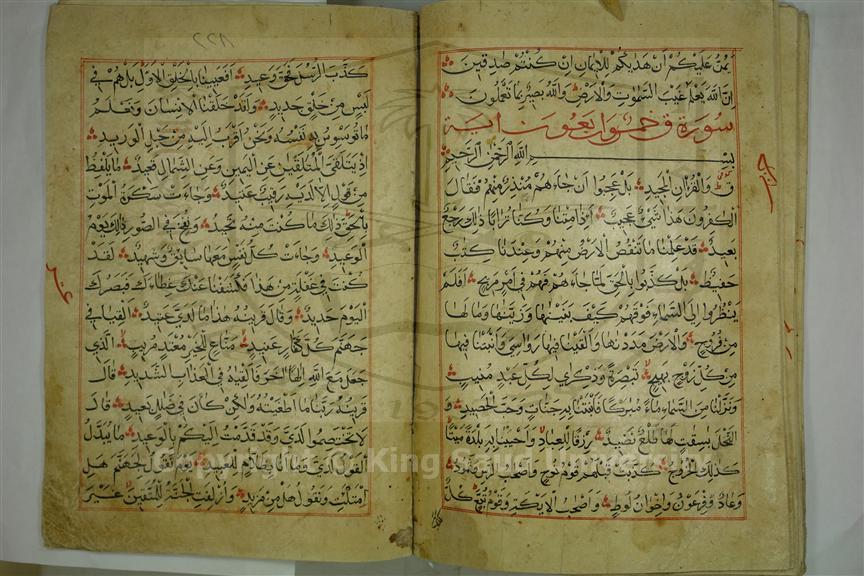 يمن عليكم ان هديكم للايمان ان كنتم صدقين
ان الله يعلم غيب السموت والارض والله بصير بما تعملون
سورة ق خمس واربعون اية
بسم الله الرحمن الرحيم
ق والقران المجيد بل عجبوا ان جاءهم منذر منهم فقال
الكفرون هذا شئ عجيب ءاذا متنا وكنا ترابا ذلك رجع
بعيد قد علمنا ما تنقص الارض منهم وعندنا كتب
حفيظ بل كذبوا بالحق لما جاءهم فهم في امر مريج افلم
ينظروا الى السماء فوقهم كيف بنينها وزينها وما لها
من فروج والارض مددنها والقينا فيها رواسي وانبتنا فيها
من كل زوج بهيج تبصرة وذكرى لكل عبد منيب
ونزلنا من السماء ماء مبركا فانبتنا به جنات وحب الحصيد و
النخل بسقت لها طلع نضيد رزقا للعباد واحيينا به بلدة ميتا
كذلك الخروج كذبت قبلهم قوم نوح واصحاب الرس وثمود
وعاد وفرعون واخوان لوط واصحاب الايكة وقوم تبع كل
٨٢٢
كذب الرسل فحق وعيد افعيينا بالخلق الاول بل هم في
لبس من خلق جديد ولقد خلقنا الانسان ونعلم
ما توسوس به نفسه ونحن اقرب اليه من حبل الوريد
اذ يتلقى المتلقين عن اليمين وعن الشمال قعيد ما يلفظ
من قول الا لديه رقيب عتيد وجاءت سكرة الموت
بالحق ذلك ما كنت منه تحيد ونفخ في الصور ذلك يوم
الوعيد وجاءت كل نفس معها سائق وشهيد لقد
كنت في غفلة من هذا فكشفنا عنك غطاءك فبصرك
اليوم حديد وقال قرينه هذا ما لدي عتيد القيا في
جهنم كل كفار عنيد مناع للخير معتد مريب الذي
جعل مع الله الها اخر فالقياه في العذاب الشديد قال
قرينه ربنا ما اطغيته ولكن كان في ضلل بعيد قال
لا تختصموا لدي وقد قدمت اليكم بالوعيد ما يبدل
القول لدي وما انا بظلام للعبيد يوم نقول لجهنم هل
امتلئت وتقول هل من مزيد وازلفت الجنة للمتقين غير
Copyright © King Saud University